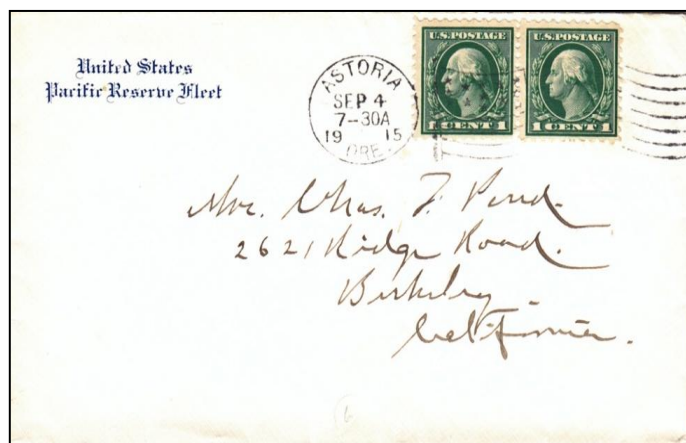 United States
Pacific Reserve Fleet
ASTORIA
SEP 4
7-30A
19 15
ORE.
U.S. POSTAGE
1 CENT 1
U.S. POSTAGE
1 CENT 1
Mrs. Chas. F. Pond
2621 Ridge Road.
Berkeley
California.
6